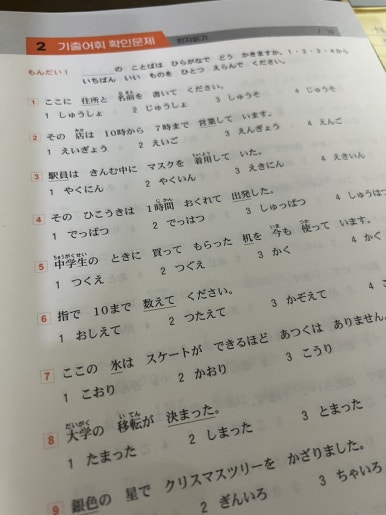 2 기출어휘 확인문제 한자읽기
/10
もんだい1 ＿＿の ことばは ひらがなで どう かきますか。1・2・3・4から
いちばん いい ものを ひとつ えらんで ください。
1 ここに 住所と 名前を 書いて ください。
1 しゅうしょ 2 じゅうしょ 3 しゅうそ 4 じゅうそ
2 その 店は 10時から 7時まで 営業して います。
1 えいぎょう 2 えいご 3 えんぎょう 4 えんご
3 駅員は きんむ中に マスクを 着用して いた。
1 やくにん 2 やくいん 3 えきにん 4 えきいん
4 その ひこうきは 1時間 おくれて 出発した。
1 でっぱつ 2 でっはつ 3 しゅっぱつ 4 しゅうはつ
5 中学生の ときに 買って もらった 机を 今も 使って います。
1 つくえ 2 つぐえ 3 かく
6 指で 10まで 数えて ください。
1 おしえて 2 つたえて 3 かぞえて 4
7 ここの 氷は スケートが できるほど あつくは ありません。
1 こおり 2 かおり 3 こうり
8 大学の 移転が 決まった。
1 たまった 2 しまった 3 とまった
9 銀色の 星で クリスマスツリーを かざりました。
2 ぎんいろ 3 ちゃいろ